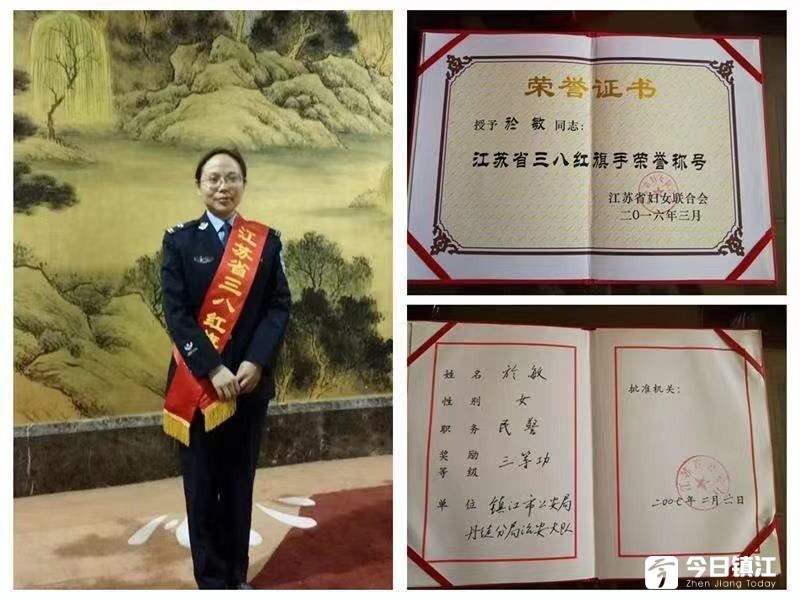 江苏省三八红旗
荣誉证书
授予 於 敏 同志：
江苏省三八红旗手荣誉称号
江苏省妇女联合会
二〇一六年三月
姓 名 於 敏
性 别 女
职 务 民 警
奖 励
等 级 三等功
单 位 镇江市公安局
丹徒分局治安大队
批准机关：
二〇〇七年二月六日
今日镇江
Zhen Jiang Today